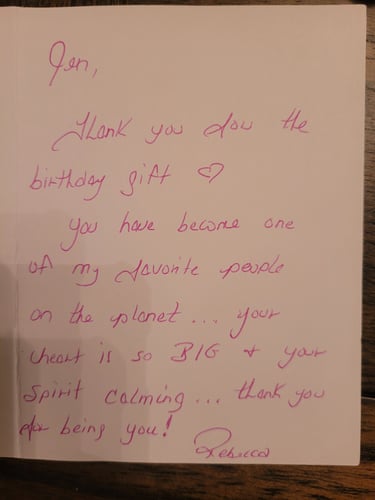 Jen,
Thank you for the
birthday gift ♡
You have become one
of my favorite people
on the planet... your
heart is so BIG & your
spirit calming... thank you
for being you!
Rebecca